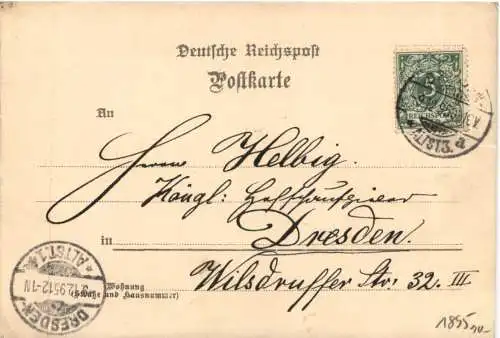 Deutsche Reichspost
Postkarte
An
Herrn Helbig.
Königl: Hofschauspieler
in Dresden.
Wilsdruffer Str. 32. III
Wohnung
(Straße und Hausnummer)
DRESDEN
ALTST. 1
12-1N
ALTST 3.
REICHSPOST
5
1895